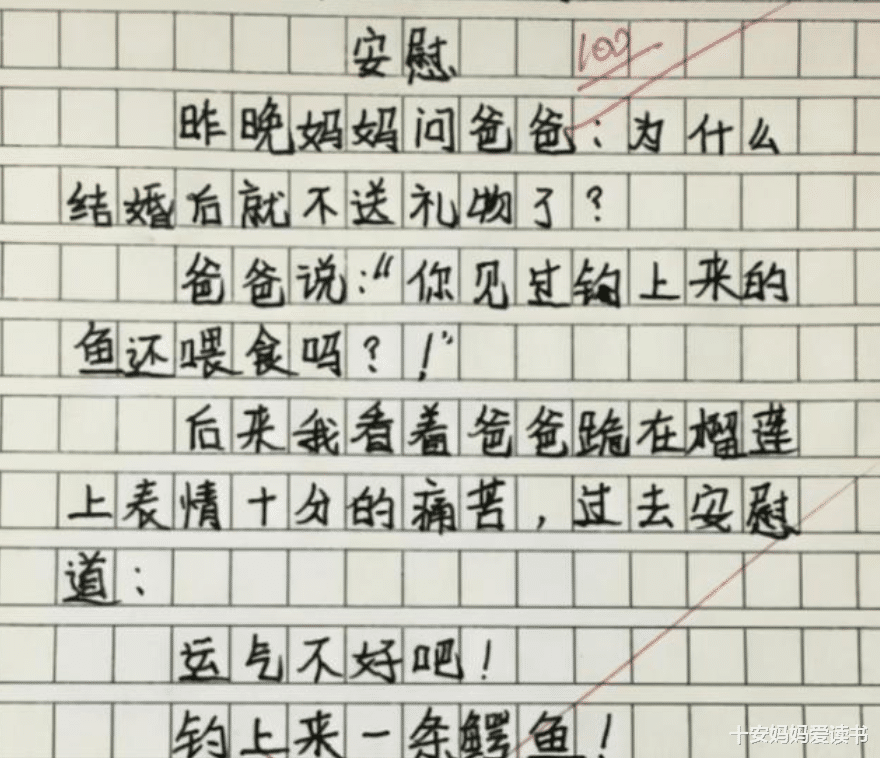 安慰 100
昨晚妈妈问爸爸:为什么
结婚后就不送礼物了?
爸爸说:“你见过钓上来的
鱼还喂食吗?!”
后来我看着爸爸跪在榴莲
上表情十分的痛苦,过去安慰
道:
运气不好吧!
钓上来一条鳄鱼!
十安妈妈爱读书